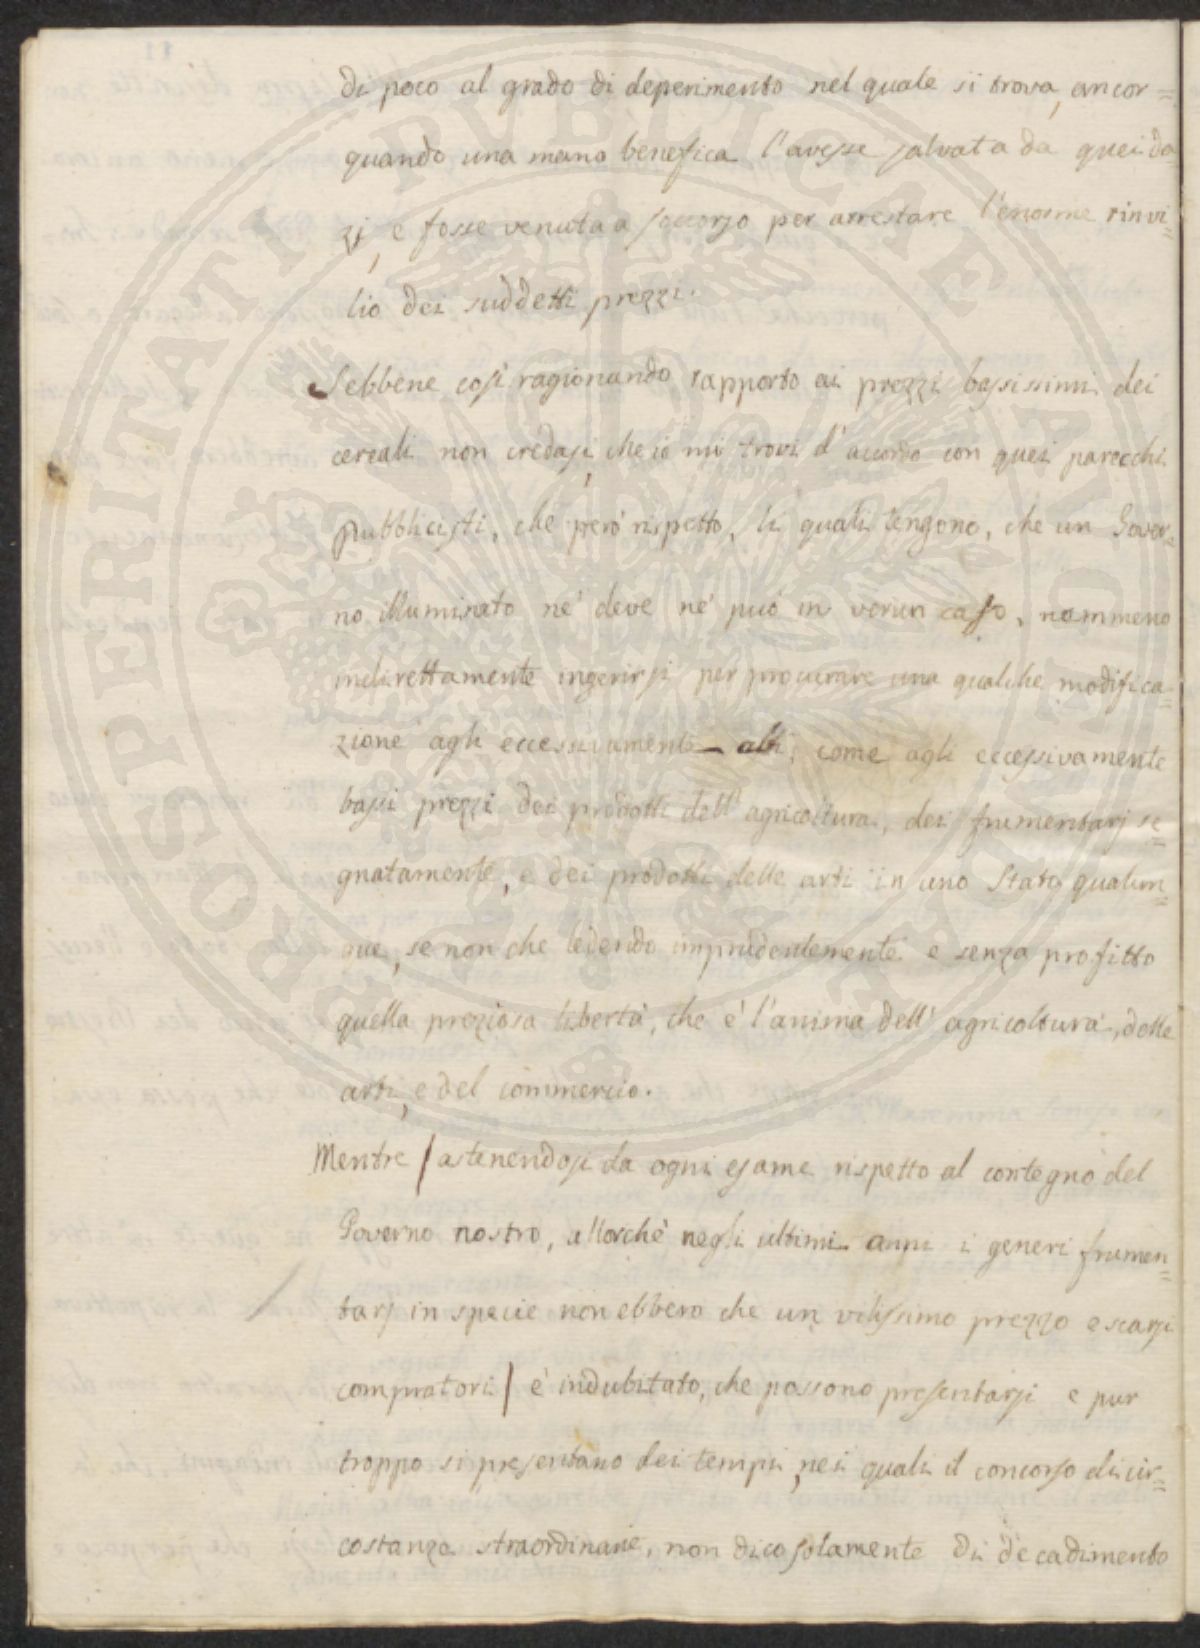 di poco al grado di deperimento nel quale si trova, ancor=
quando una mano benefica l'avesse salvata da quei da=
zj, e fosse venuta a soccorso per arrestare l'enorme rinvi=
lio dei suddetti prezzi.
Sebbene così ragionando rapporto ai prezzi bassissimi dei
cereali non credasi, che io mi trovi d'accordo con quei parecchi
pubblicisti, che però rispetto, li quali tengono, che un Gover=
no illuminato nè deve nè può in verun caso, nemmeno
indirettamente ingerirsi per procurare una qualche modifica=
zione agli eccessivamente alti, come agli eccessivamente
bassi prezzi dei prodotti dell'agricoltura, dei frumentarj se=
gnatamente, e dei prodotti delle arti in uno Stato qualun=
que, se non che ledendo imprudentemente e senza profitto
quella preziosa libertà, che è l'anima dell'agricoltura, delle
arti, e del commercio.
Mentre / astenendosi da ogni esame rispetto al contegno del
Governo nostro, allorchè negli ultimi anni i generi frumen=
tarj in specie non ebbero che un vilissimo prezzo e scarsi
compratori / è indubitato, che possono presentarsi e pur
troppo si presentano dei tempi, nei quali il concorso di cir=
costanze straordinarie, non dico solamente di decadimento
PROSPERITATI PUBLICAE AUGENDAE
11